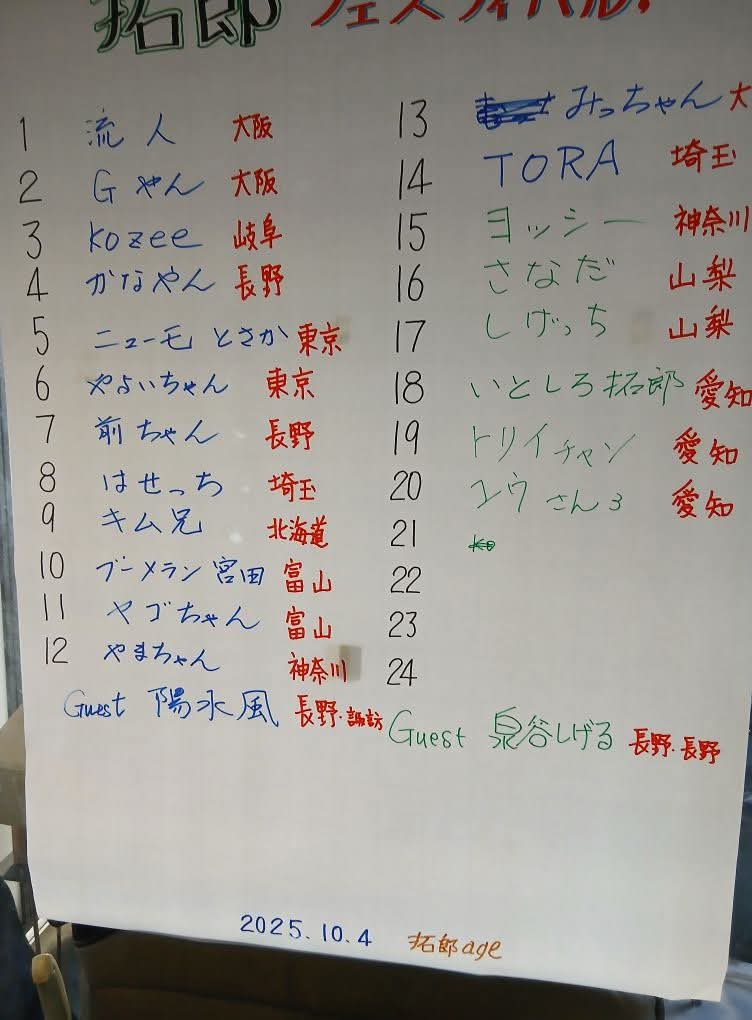 拓郎 フェスティバル!
1 流人 大阪
2 Gやん 大阪
3 Kozee 岐阜
4 かなやん 長野
5 ニューモ とさか 東京
6 やよいちゃん 東京
7 前ちゃん 長野
8 はせっち 埼玉
9 キム兄 北海道
10 ブーメラン宮田 富山
11 ヤゴちゃん 富山
12 やまちゃん 神奈川
Guest 陽水風 長野・諏訪
13 みっちゃん 大
14 TORA 埼玉
15 ヨッシー 神奈川
16 さなだ 山梨
17 しげっち 山梨
18 いとしろ拓郎 愛知
19 トリイチャン 愛知
20 ユウさん3 愛知
21
22
23
24
Guest 泉谷しげる 長野・長野
2025.10.4 拓郎age